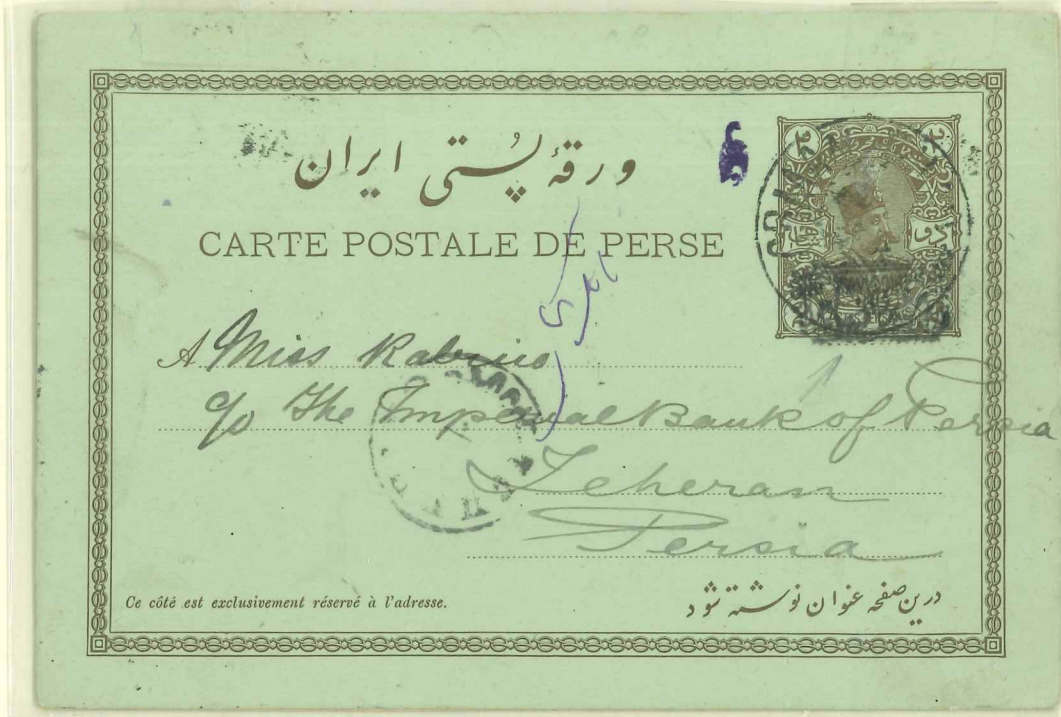 ورقهٔ پستی ایران
CARTE POSTALE DE PERSE
A Miss Rabino
c/o The Imperial Bank of Persia
Teheran
Persia
Ce côté est exclusivement réservé à l'adresse.
درین صفحه عنوان نوشته شود